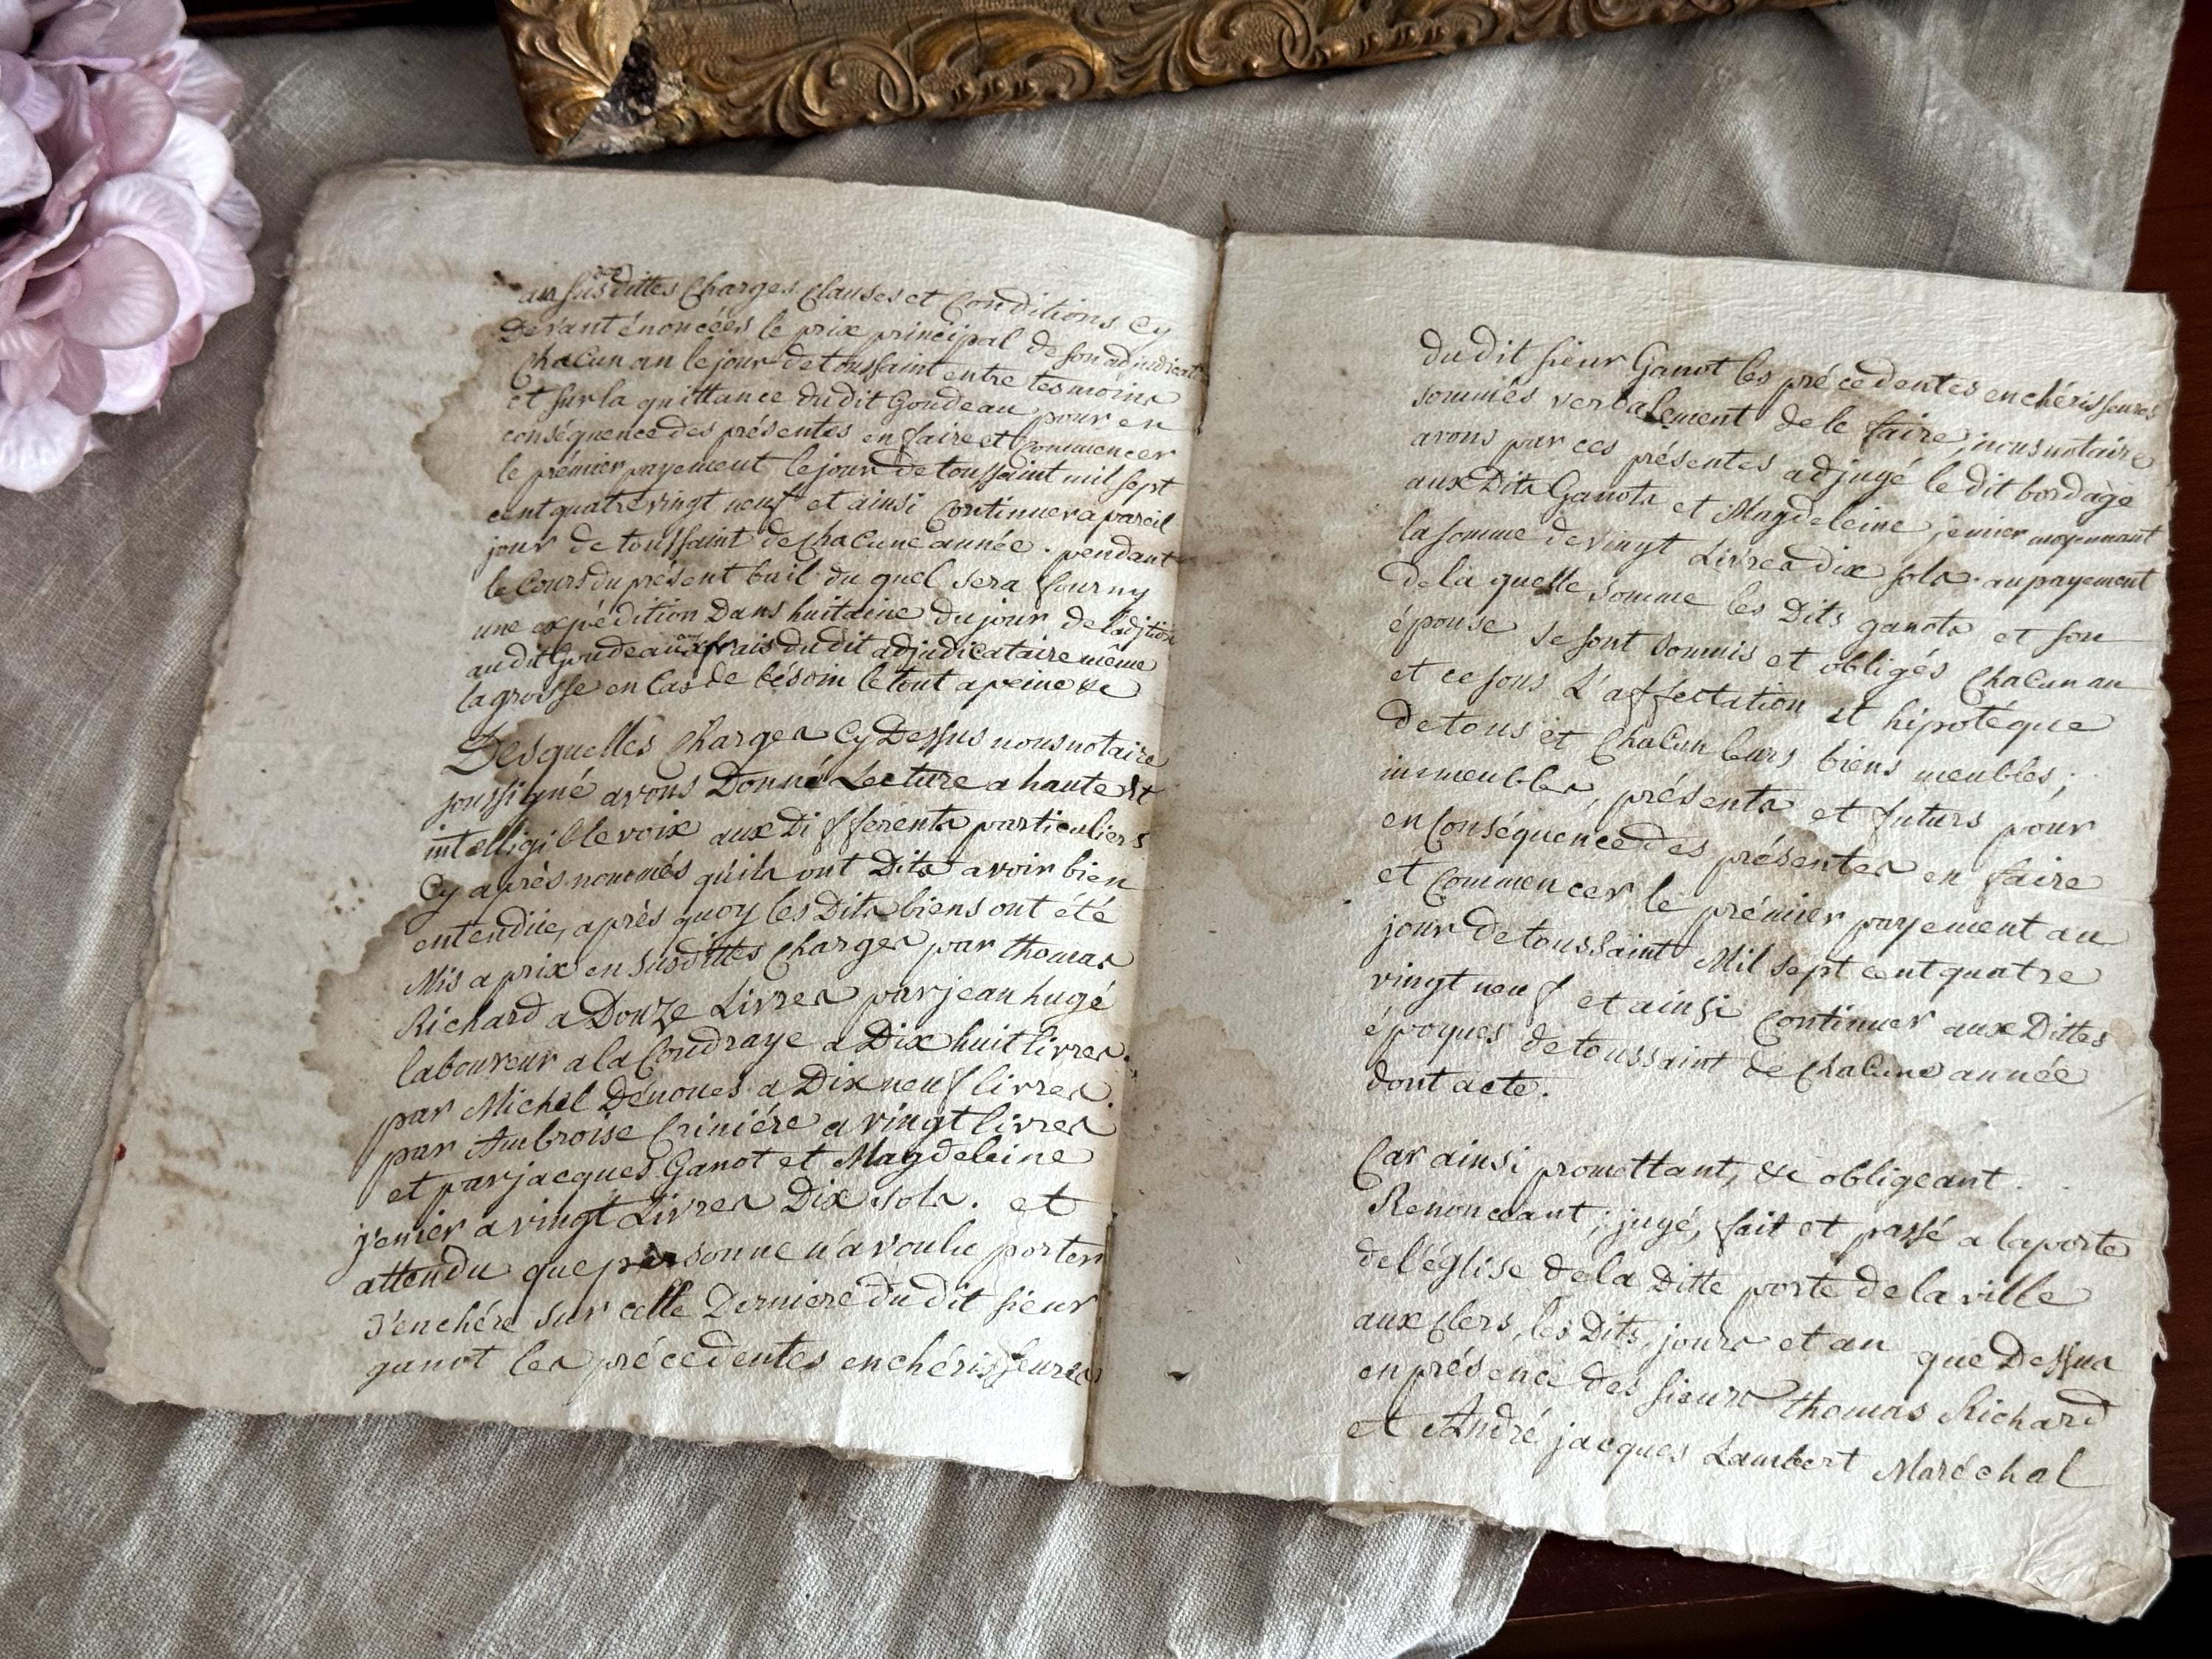 aux susdittes Charges Clauses et Conditions Cy
Devant énoncées le prix principal de son adjudicat
Chacun an le jour de toussaint entre les moins
et sur la quittance dudit Goudeau pour en
conséquence des présentes en faire et Commencer
le prémier payement le jour de toussaint mil sept
cent quatre vingt neuf et ainsi Continuer a pareil
jour de toussaint de chacune année . pendant
le Cours du présent bail du quel sera fourny
une expédition Dans huitaine du jour de
au dit Goudeau aux frais du dit adjudicataire même
la grosse en Cas de bésoin le tout a peine &c
Desquelles Charges Cy Dessus nous notaire
soussigné avons Donné Lecture a haute et
intelligible voix aux Différents particuliers
Cy après nommés qu'ils ont Dits avoir bien
entendüe, après quoy les Dits biens ont été
Mis a prix en susdittes Charges par thomas
Richard a Douze Livres par jean hugé
laboureur a la Coudraye a Dix huit livres.
par Michel Dénoues a Dix neuf livres.
par Ambroise Criniére a vingt livres
et par jacques Ganot et Magdeleine
jenier a vingt Livres Dix sols. et
attendu que personne n'a voulu porter
l'enchére sur celle Derniere du dit sieur
ganot les précédentes enchérisseures
du dit sieur Ganot les précedentes enchérisseures
sommés verbalement de le faire, nous notaire
avons par ces présentes adjugé le dit bordage
aux Dits Ganots et Magdeleine jenier moyennant
la somme de vingt Livres dix sols. au payement
de la quelle somme les Dits ganots et son
épouse se sont soumis et obligés Chacun an
et ce sous L'affectation et hipotéque
de tous et Chacun leurs biens meubles ;
immeubles, présents et futurs pour
en Conséquence des présentes en faire
et Commencer le prémier payement au
jour de toussaint Mil sept cent quatre
vingt neuf et ainsi Continuer aux Dittes
époques de toussaint de chacune année
dont acte.
Car ainsi promettant, &c obligeant .
Renonceant ; jugé, fait et passé a la porte
de l'église de la Ditte porte de la ville
aux Clers, les Dits, jours et an que Dessus
en présence des sieurs thomas Richard
et André jacques Lambert Maréchal